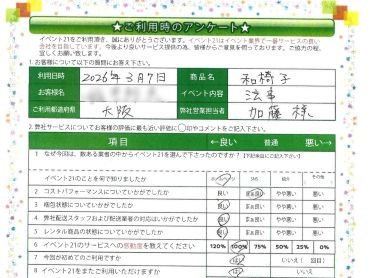 ★ご利用時のアンケート★
イベント21をご利用頂き、誠にありがとうございます。イベント21はイベント業界で一番サービスの良い
会社を目指しています。今後より良いサービス提供の為、皆様からご意見を伺っております。ご協力の程、
宜しくお願い致します。
1.お客様について以下の質問にお答え下さい。
利用日時 2026年3月7日 商品名 和椅子
お客様名 イベント内容 法事
ご利用都道府県 大阪 弊社営業担当者 加藤様
2.弊社サービスについてお客様の評価に最も近い評価に○印やコメントをご記入下さい。
項目 ←良い 普通 悪い→
1 なぜ今回は、数ある業者の中からイベント21を選んで下さったのですか?【下記余白にご記入下さい】
イベント21のことを何で知りましたか ホームページ 紹介 その他
2 コストパフォーマンスについていかがでしたか 良い やや良い やや悪い 悪い
3 梱包状態についていかがでしたか 良い やや良い やや悪い 悪い
4 弊社配送スタッフおよび配送業者の対応はいかがでしたか 良い やや良い やや悪い 悪い
5 レンタル商品の状態についていかがでしたか 良い やや良い やや悪い 悪い
6 イベント21のサービスへの感動度を教えてください 120% 100% 75% 50% 25% 0%
7 今回が初めてのご利用ですか はい いいえ( 回目)
8 イベント21をまたご利用いただけますか はい いいえ